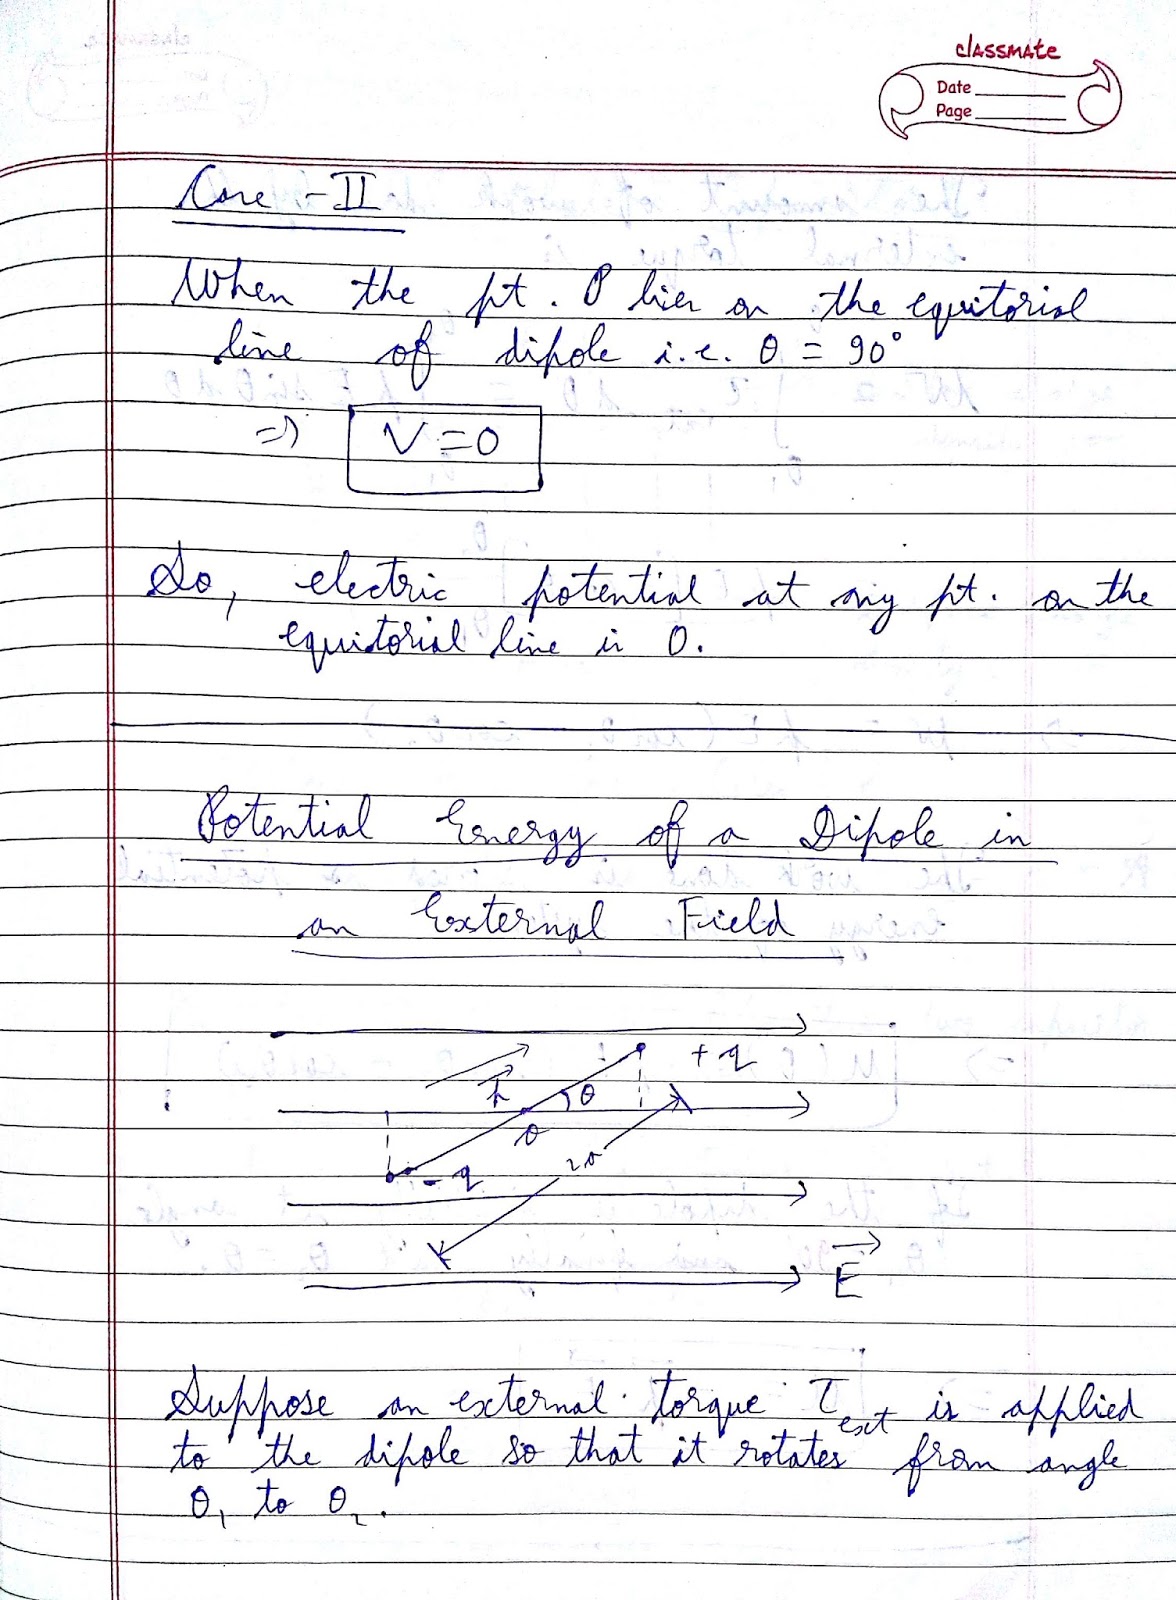 classmate
Date
Page
Case - II
When the pt. P lies on the equitorial
line of dipole i.e. θ = 90°
⇒ V = 0
So, electric potential at any pt. on the
equitorial line is 0.
Potential Energy of a Dipole in
an External Field
+q
p⃗
θ
O
2a
-q
E⃗
Suppose an external torque τext is applied
to the dipole so that it rotates from angle
θ₁ to θ₂.